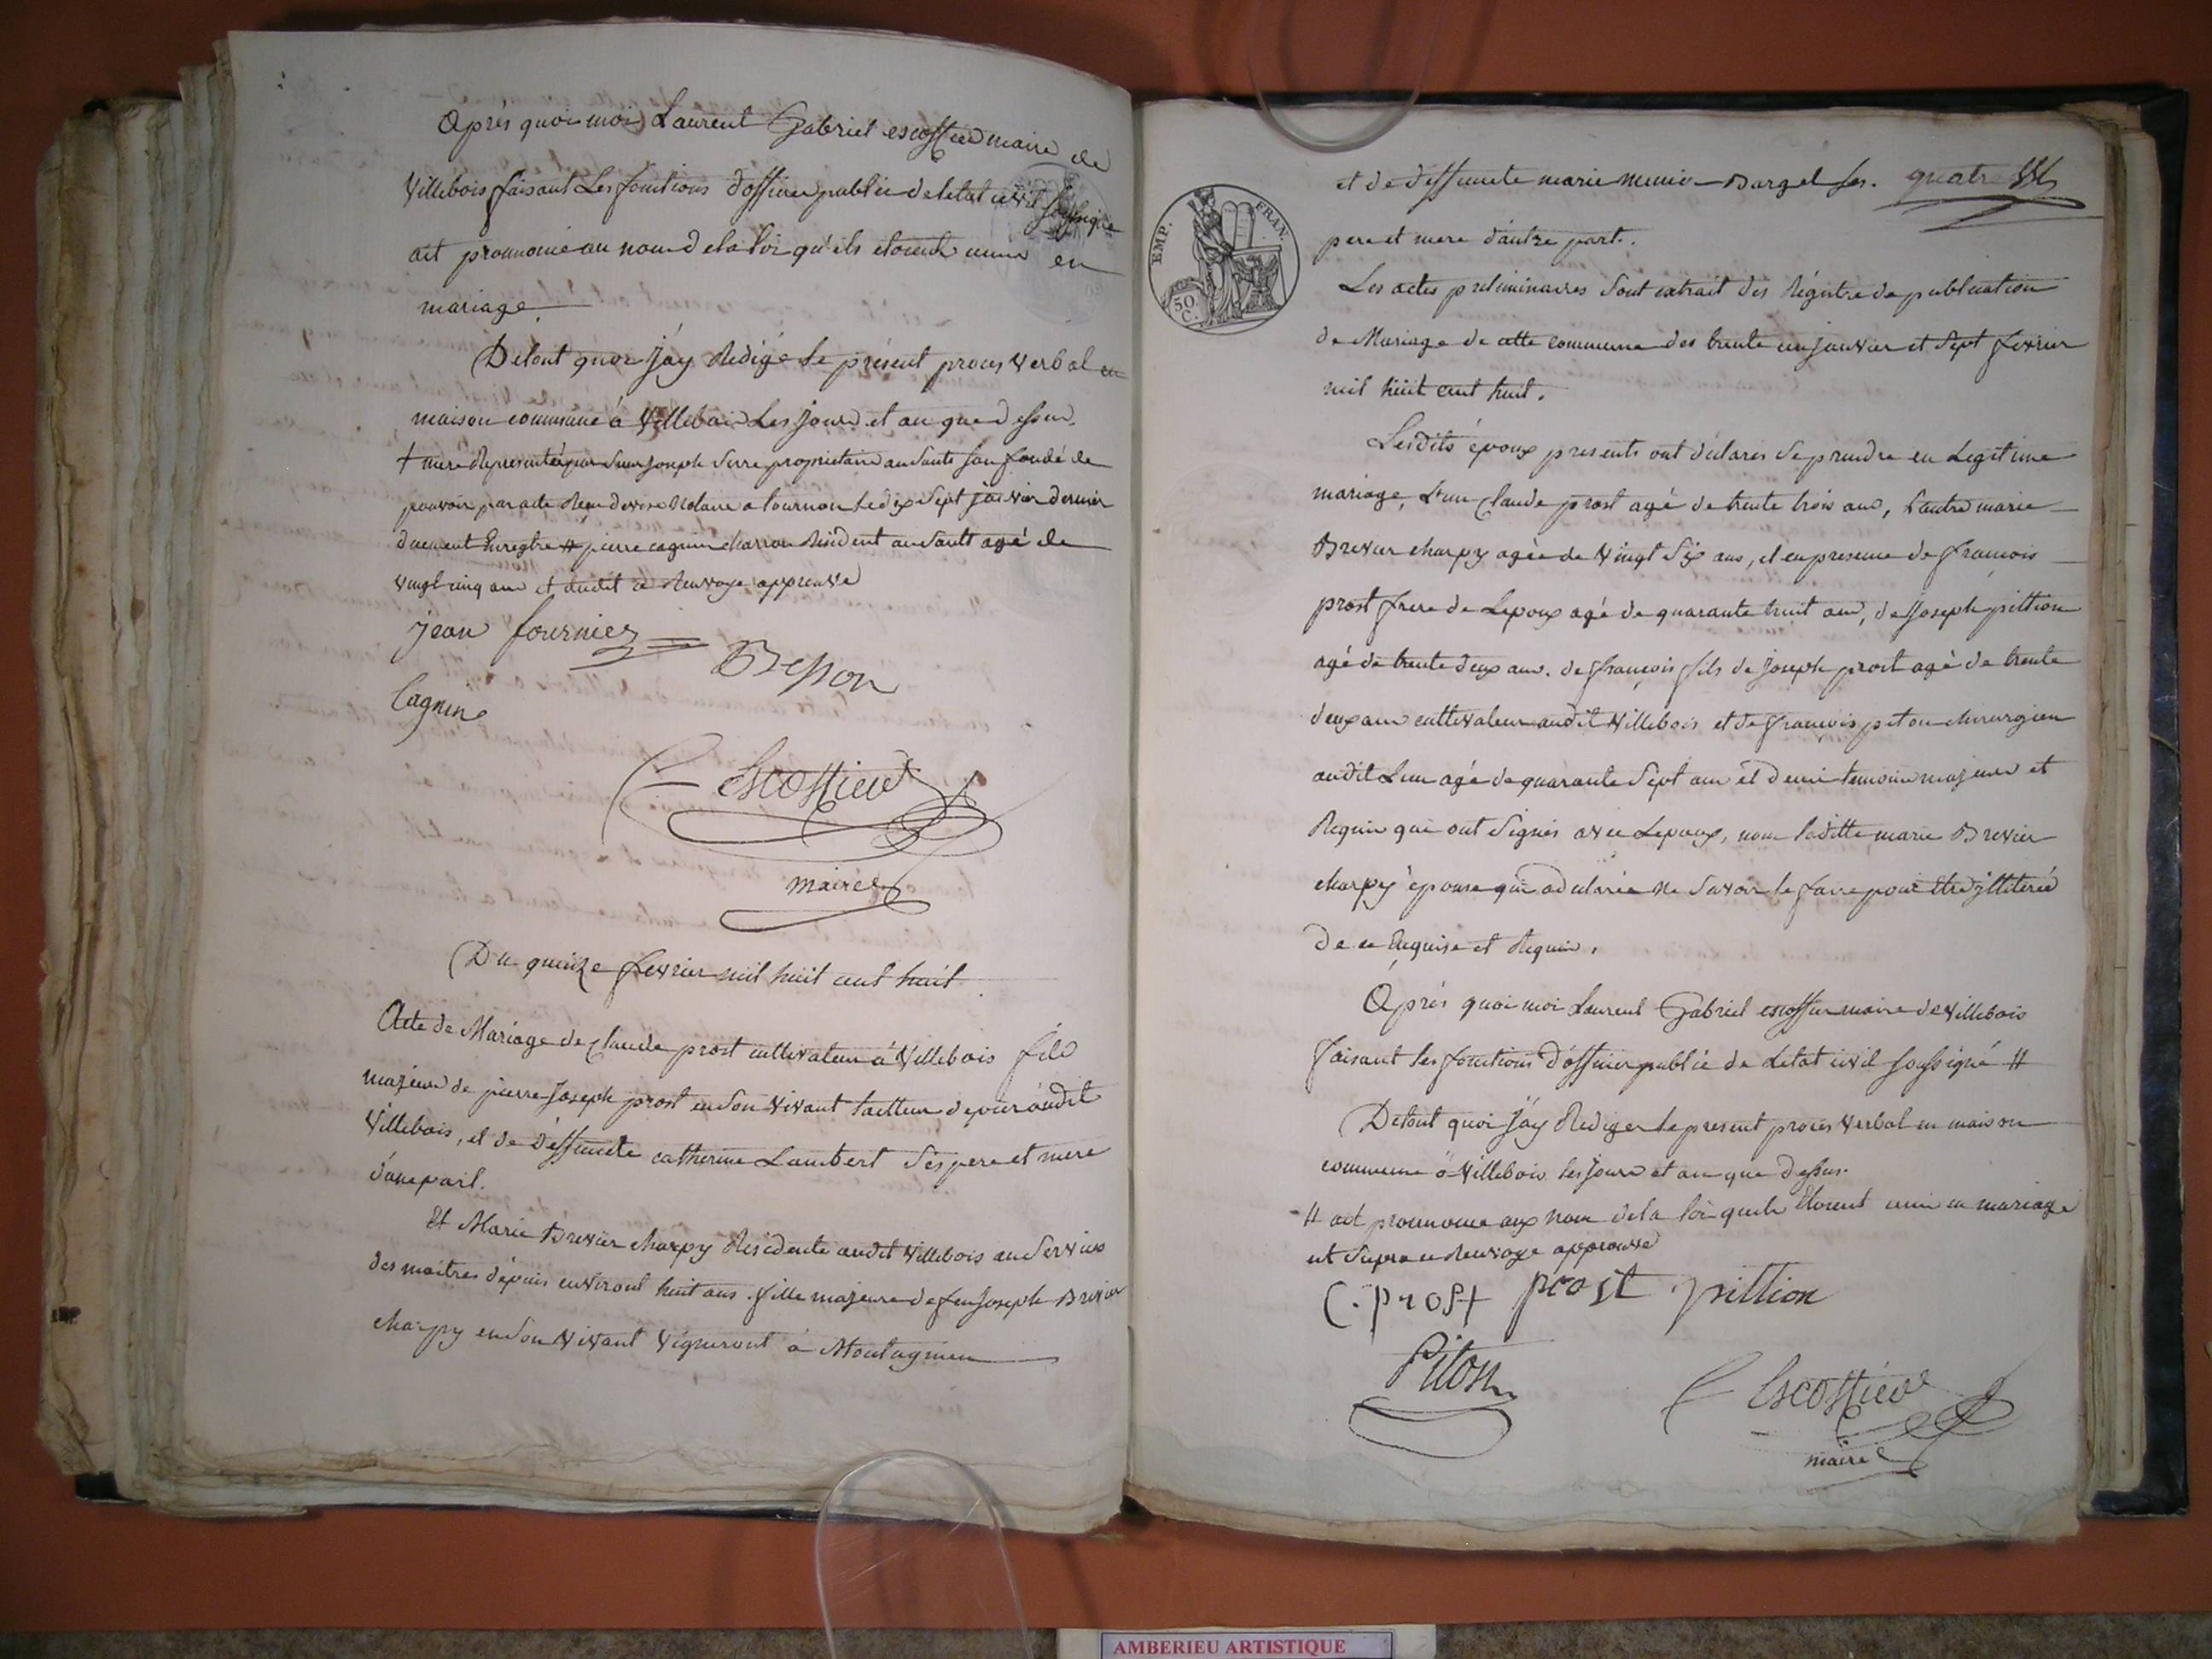 Après quoi moi Laurent Gabriel escoffier maire de
Villebois faisant Les fonctions d'officier public de letat civil soussigné
ait prononcé au nom de la loi qu'ils etoient unis en
mariage.
De tout quoi j'ay Redigé le présent procès verbal en
maison commune á Villebois Les jour et an que dessus.
† mere Representée par Sieur joseph Serre proprietaire au Sault son fondé de
pouvoir par acte Reçu notaire a tournon le dix Sept janvier dernier
duement Enregistré # pierre cagnin charron Résident au Sault agé de
vingt cinq ans et dudit ce Renvoye approuvé
jean fournier
Besson
Cagnin
Escoffier
maire
Du quinze fevrier mil huit cent huit
Acte de Mariage de Claude prost cultivateur á Villebois fils
majeur de pierre Joseph prost en son vivant tailleur de pier audit
Villebois, et de deffuncte catherine Lambert Ses pere et mere
d'une part.
Et Marie Brevier charpy Residente audit Villebois au Service
des maitres depuis environt huit ans. fille majeure de feu joseph Brevier
charpy en son vivant vigneront á Montagnieu
et de deffuncte marie Bargel ses. quatre
pere et mere d'autre part.
Les actes preliminaires Sont extrait des Régistre de publication
de Mariage de cette commune des trente un janvier et Sept fevrier
mil huit cent huit.
Lesdits époux presents ont déclarés Se prendre en Legitime
mariage, L'un Claude prost agé de trente trois ans, L'autre marie
Brevier charpy agée de Vingt Six ans, et en presence de françois
prost frere de Lepoux agé de quarante huit ans, de Joseph pittion
agé de trente deux ans. de françois fils de joseph prost agé de trente
deux ans cultivateur audit Villebois et de françois piton chirurgien
audit Lieu agé de quarante Sept ans et demi temoins majeurs et
Requis qui ont Signés avec Lepoux, non laditte marie Brevier
charpy épouse qui a declarée ne Savoir le faire pour Etre illiterée
de ce Enquise et Requis.
Après quoi moi Laurent Gabriel escoffier maire de Villebois
faisant les fonctions d'officier public de Letat civil soussigné #
De tout quoi j'ay Rediger le present procès verbal en maison
commune á Villebois les jour et an que dessus.
# ait prononcé aux nom de la loi quils Etoient unis en mariage
ut Supra ce Renvoye approuvé
C. prost prost pittion
Piton
Escoffier
maire
EMP. FRAN.
50 C.
AMBERIEU ARTISTIQUE